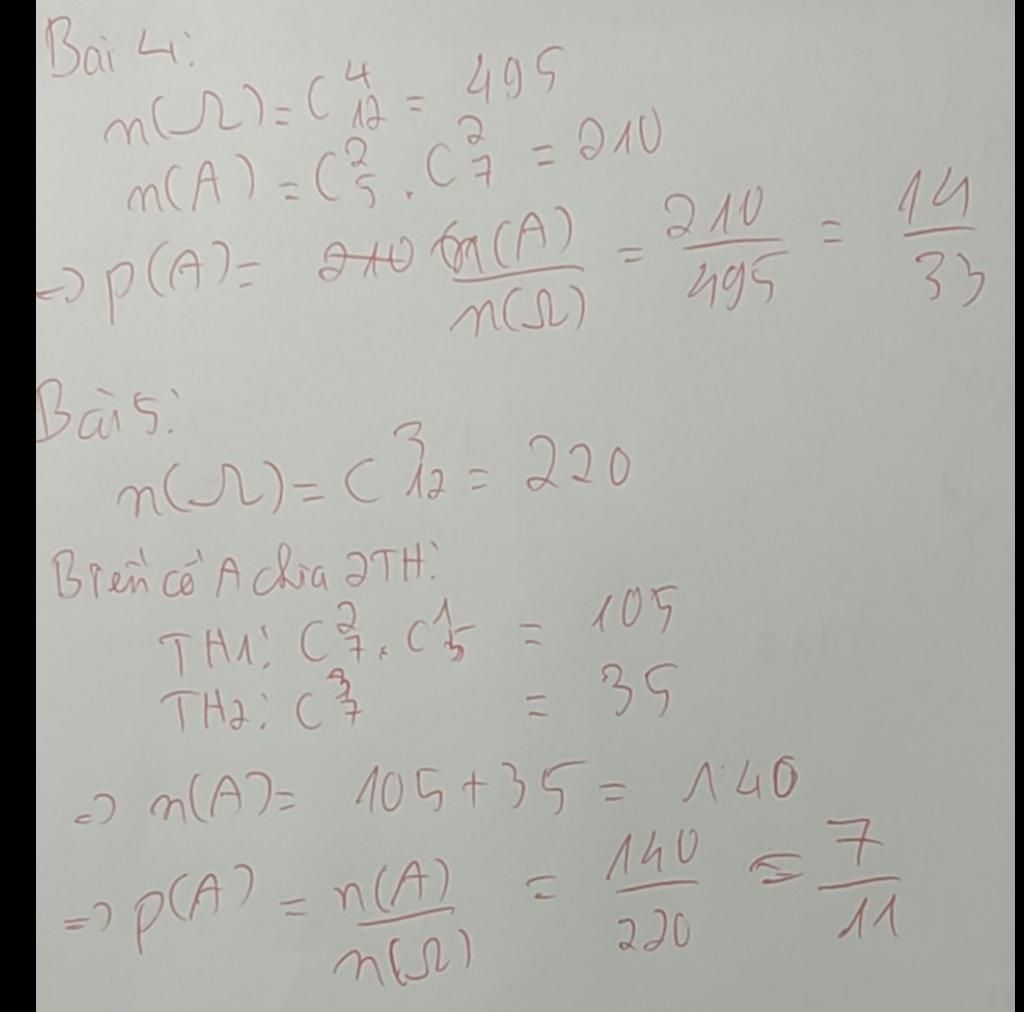 Bài 4:
n(Ω) = C⁴₁₂ = 495
n(A) = C²₅ . C²₇ = 210
=> p(A) = 210 n(A)/n(Ω) = 210/495 = 14/33
Bài 5:
n(Ω) = C³₁₂ = 220
Biến cố A chia 2TH:
TH1: C²₇ . C¹₅ = 105
TH2: C³₇ = 35
=> n(A) = 105 + 35 = 140
=> p(A) = n(A)/n(Ω) = 140/220 = 7/11